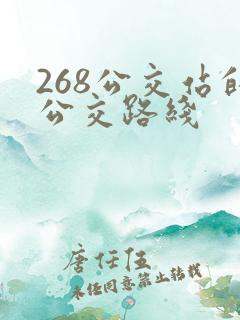 268公交站的
公交路线
唐任伍
未经同意禁止转载